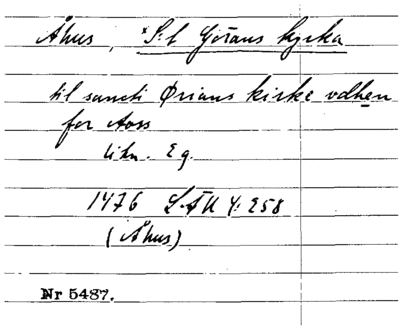 Åhus, *S:t Görans kyrka
til sancti Ørians kirke vdhen
for Aoss
Eg.
1476 LÄU 4:258
(Åhus)
Nr 5487.